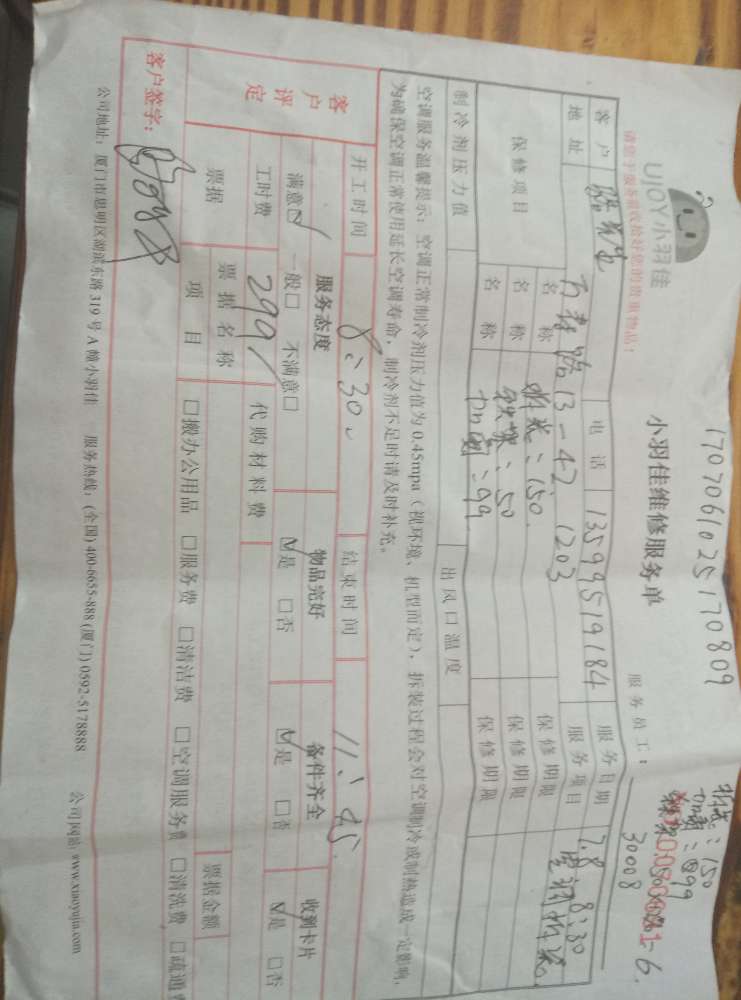 170706102517 0809
拆装：150
加氟：99
UJOY小羽佳
小羽佳维修服务单
服务员工：30008
请您于服务前收拾好您的贵重物品！
客户 电话 13599519184 服务日期 7.8 8:30
地址 13-42 1203 服务项目 空调拆装
保修项目 名称 拆装：150. 保修期限
名称 铁架：50 保修期限
名称 加氟：99 保修期限
制冷剂压力值 出风口温度
空调服务温馨提示：空调正常制冷剂压力值为0.45mpa（视环境、机型而定），拆装过程会对空调制冷或制热造成一定影响，
为确保空调正常使用延长空调寿命，制冷剂不足时请及时补充。
开工时间 8:30 结束时间 11:45
客户评定 服务态度 物品完好 备件齐全 收到卡片
满意☑ 一般□ 不满意□ ☑是 □否 ☑是 □否 ☑是 □否
工时费 299 代购材料费
票据 票据名称 票据金额
项目 □搬办公用品 □服务费 □清洁费 □空调服务费 □清洗费 □疏通
客户签字：
公司地址：厦门市思明区湖滨东路319号A幢小羽佳 服务热线：(全国) 400-6655-888 (厦门) 0592-5178888 公司网站: www.xiaoyujia.com